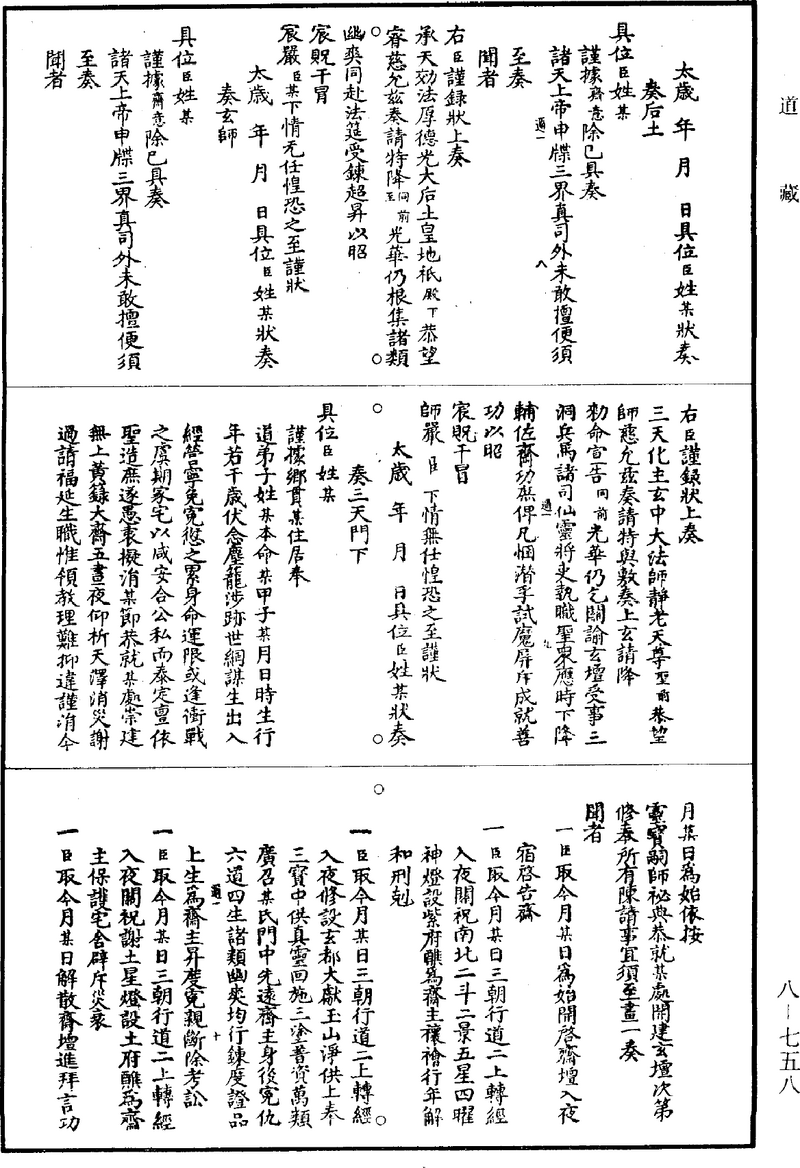 道藏
太歲　年　月　日具位臣姓某狀奏
奏后土
具位臣姓某
謹據齋意除已具奏
諸天上帝申牒三界真司外未敢擅便須
至奏
聞者
右臣謹錄狀上奏
承天効法厚德光大后土皇地祇殿下恭望
睿慈允茲奏請特降至前同光華仍根集諸類
幽爽同赴法筵受鍊超昇以昭
宸貺干冒
宸嚴臣某下情无任惶恐之至謹狀
太歲　年　月　日具位臣姓某狀奏
奏玄師
具位臣姓某
謹據齋意除已具奏
諸天上帝申牒三界真司外未敢擅便須
至奏
聞者
右臣謹錄狀上奏
三天化主玄中大法師靜老天尊至前恭望
師慈允茲奏請特與敷奏上玄請降
勑命宣告同前光華仍乞關諭玄壇受事三
洞兵馬諸司仙靈將吏執職聖衆應時下降
輔佐齋功無俾凡悃潛孚試魔屏斥成就善
功以昭
宸貺干冒
師嚴臣下情無任惶恐之至謹狀
太歲　年　月　日具位臣姓某狀奏
奏三天門下
具位臣姓某
謹據鄉貫某住居奉
道弟子姓某本命某甲子某月日時生行
年若干歲伏念塵籠涉跡世網謀生出入
經營寧免寃愆之累身命運限或逢衝戰
之虞期家宅以咸安合公私而泰定亶依
聖造庶遂愚衷擬消某節恭就某處崇建
無上黃籙大齋五晝夜仰祈天澤消災謝
過請福延生職惟領教理難抑違謹涓今
月某日爲始依按
靈寶嗣師祕典恭就某處開建玄壇次第
修奉所有陳請事宜須至畫一奏
聞者
一臣取今月某日爲始開啓齋壇入夜
宿啓告齋
一臣取今月某日三朝行道二上轉經
入夜關祝南北二斗二景五星四曜
神燈設紫府醮爲齋主禳禬行年解
和刑剋
一臣取今月某日三朝行道二上轉經
入夜修設玄都大獻玉山淨供上奉
三寶中供真靈回施三塗普資萬類
廣召某氏門中先遠齋主身後寃仇
六道四生諸類幽爽均行鍊度證品
上生爲齋主昇度寃親斷除考訟
一臣取今月某日三朝行道二上轉經
入夜關祝謝土星燈設土府醮爲齋
主保護宅舍辟斥災衆
一臣取今月某日解散齋壇進拜言功
八－七五八